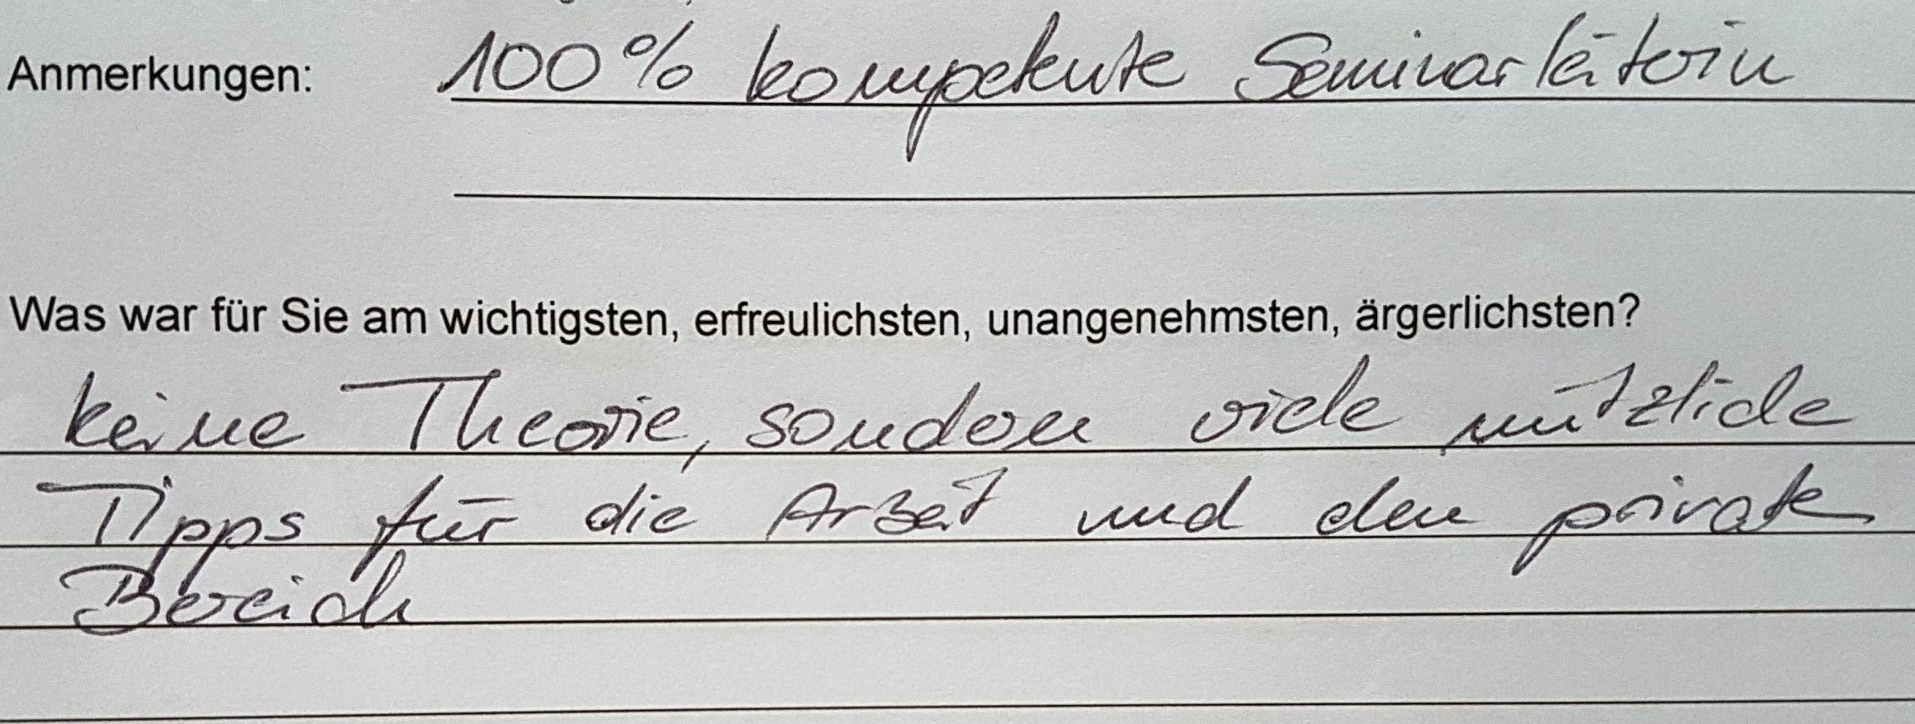 Anmerkungen: 100% kompetente Seminarleiterin
Was war für Sie am wichtigsten, erfreulichsten, unangenehmsten, ärgerlichsten?
keine Theorie, sondern viele nützliche
Tipps für die Arbeit und den privaten
Bereich